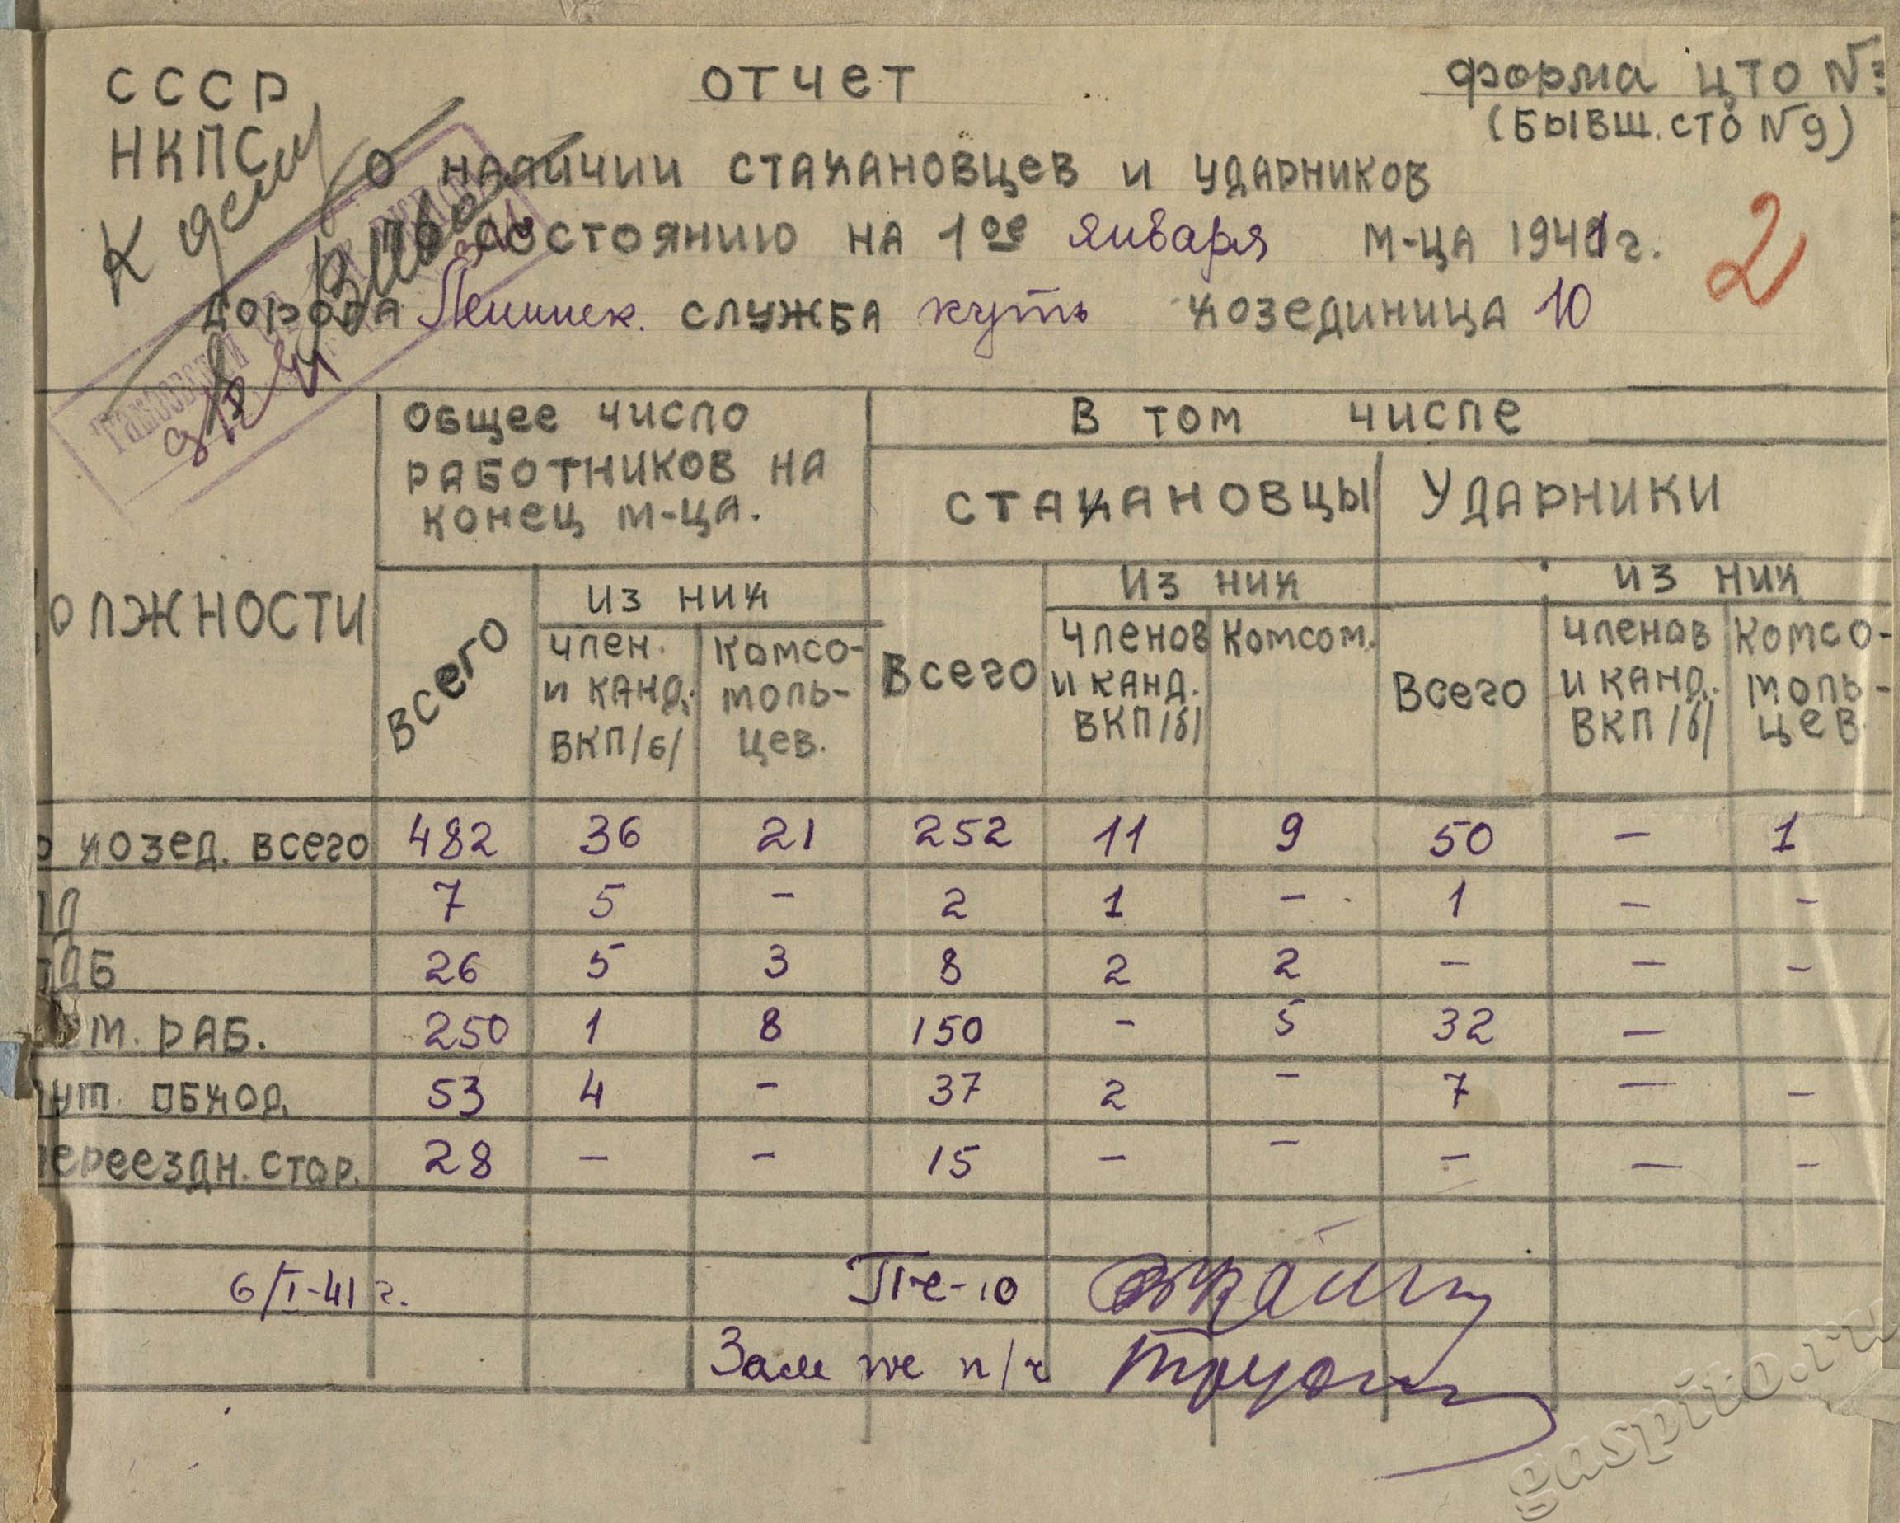 СССР
НКПС
ОТЧЕТ
форма ЦТО №
(БЫВШ. СТО № 9)
О НАЛИЧИИ СТАХАНОВЦЕВ И УДАРНИКОВ
ПО СОСТОЯНИЮ НА 1ое января М-ЦА 1941 г.
2
К делу
Дорога Ленинск. СЛУЖБА путь ХОЗЕДИНИЦА 10
ОБЩЕЕ ЧИСЛО
РАБОТНИКОВ НА
КОНЕЦ М-ЦА.
В ТОМ ЧИСЛЕ
СТАХАНОВЦЫ УДАРНИКИ
ОЛЖНОСТИ
ВСЕГО
ИЗ НИХ
ЧЛЕН.
И КАНД.
ВКП/б/
КОМСО-
МОЛЬ-
ЦЕВ.
ВСЕГО
ИЗ НИХ
ЧЛЕНОВ
И КАНД.
ВКП/б/
КОМСОМ.
ВСЕГО
ИЗ НИХ
ЧЛЕНОВ
И КАНД.
ВКП/б/
КОМСО-
МОЛЬ-
ЦЕВ
О ХОЗЕД. ВСЕГО 482 36 21 252 11 9 50 — 1
ПД 7 5 - 2 1 - 1 — -
ПДБ 26 5 3 8 2 2 - — -
ЕМ. РАБ. 250 1 8 150 - 5 32 —
ПУТ. ОБХОД. 53 4 - 37 2 - 7 — -
ПЕРЕЕЗДН. СТОР. 28 — - 15 — - — — -
6/I-41 г. ПЧ-10
Зам п/ч
gaspito.ru